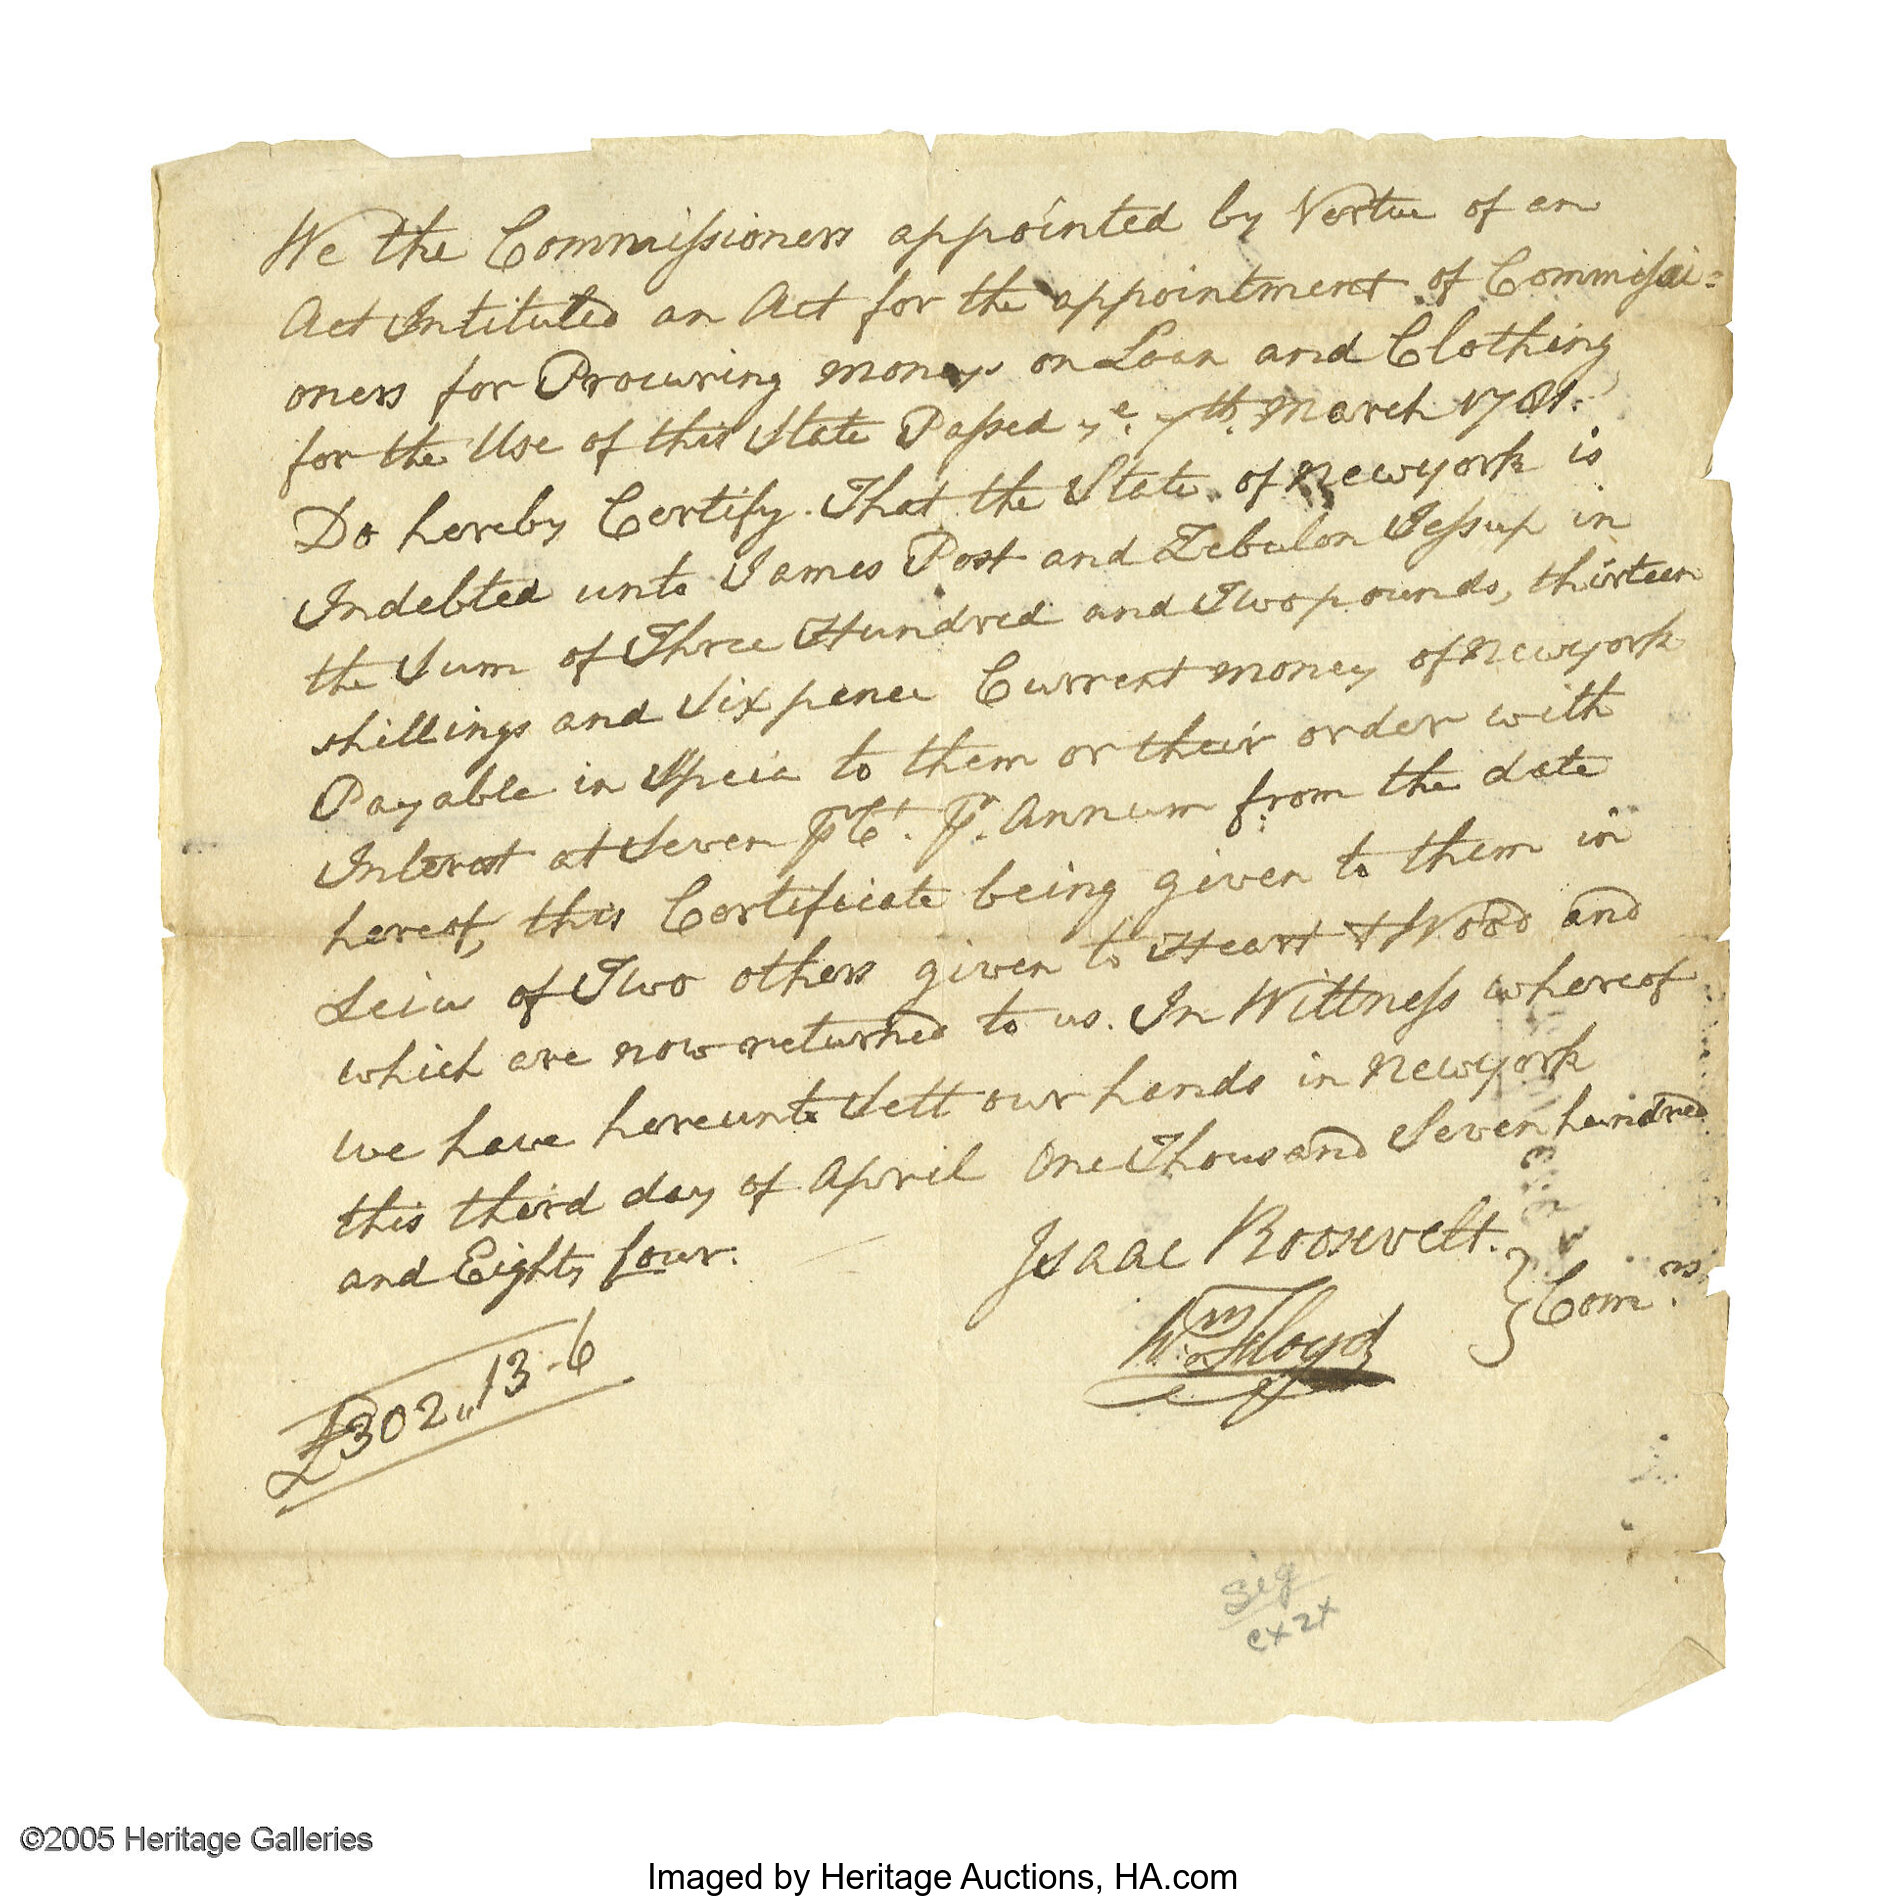 We the Commissioners appointed by Vertue of an
Act Intituled an Act for the appointment of Commissi=
oners for Procuring money on Loan and Clothing
for the Use of this State Passed ye. 7th. March 1781.
Do hereby Certify That the State of Newyork is
Indebted unto James Post and Zebulon Jessup in
the Sum of Three Hundred and Two pounds, thirteen
shillings and Six pence Current money of Newyork
Payable in Specie to them or their order with
Interest at Seven P Ct. Pr. Annum from the date
hereof, this Certificate being given to them in
Leiu of Two others given to Heart & Wood and
which are now returned to us. In Wittness whereof
we have hereunto Sett our hands in Newyork
this third day of April One Thousand Seven hundred
and Eighty four.
Isaac Roosevelt.
Wm Floyd
} Com.rs
£302,,13-6
sig
ex 2x
©2005 Heritage Galleries
Imaged by Heritage Auctions, HA.com